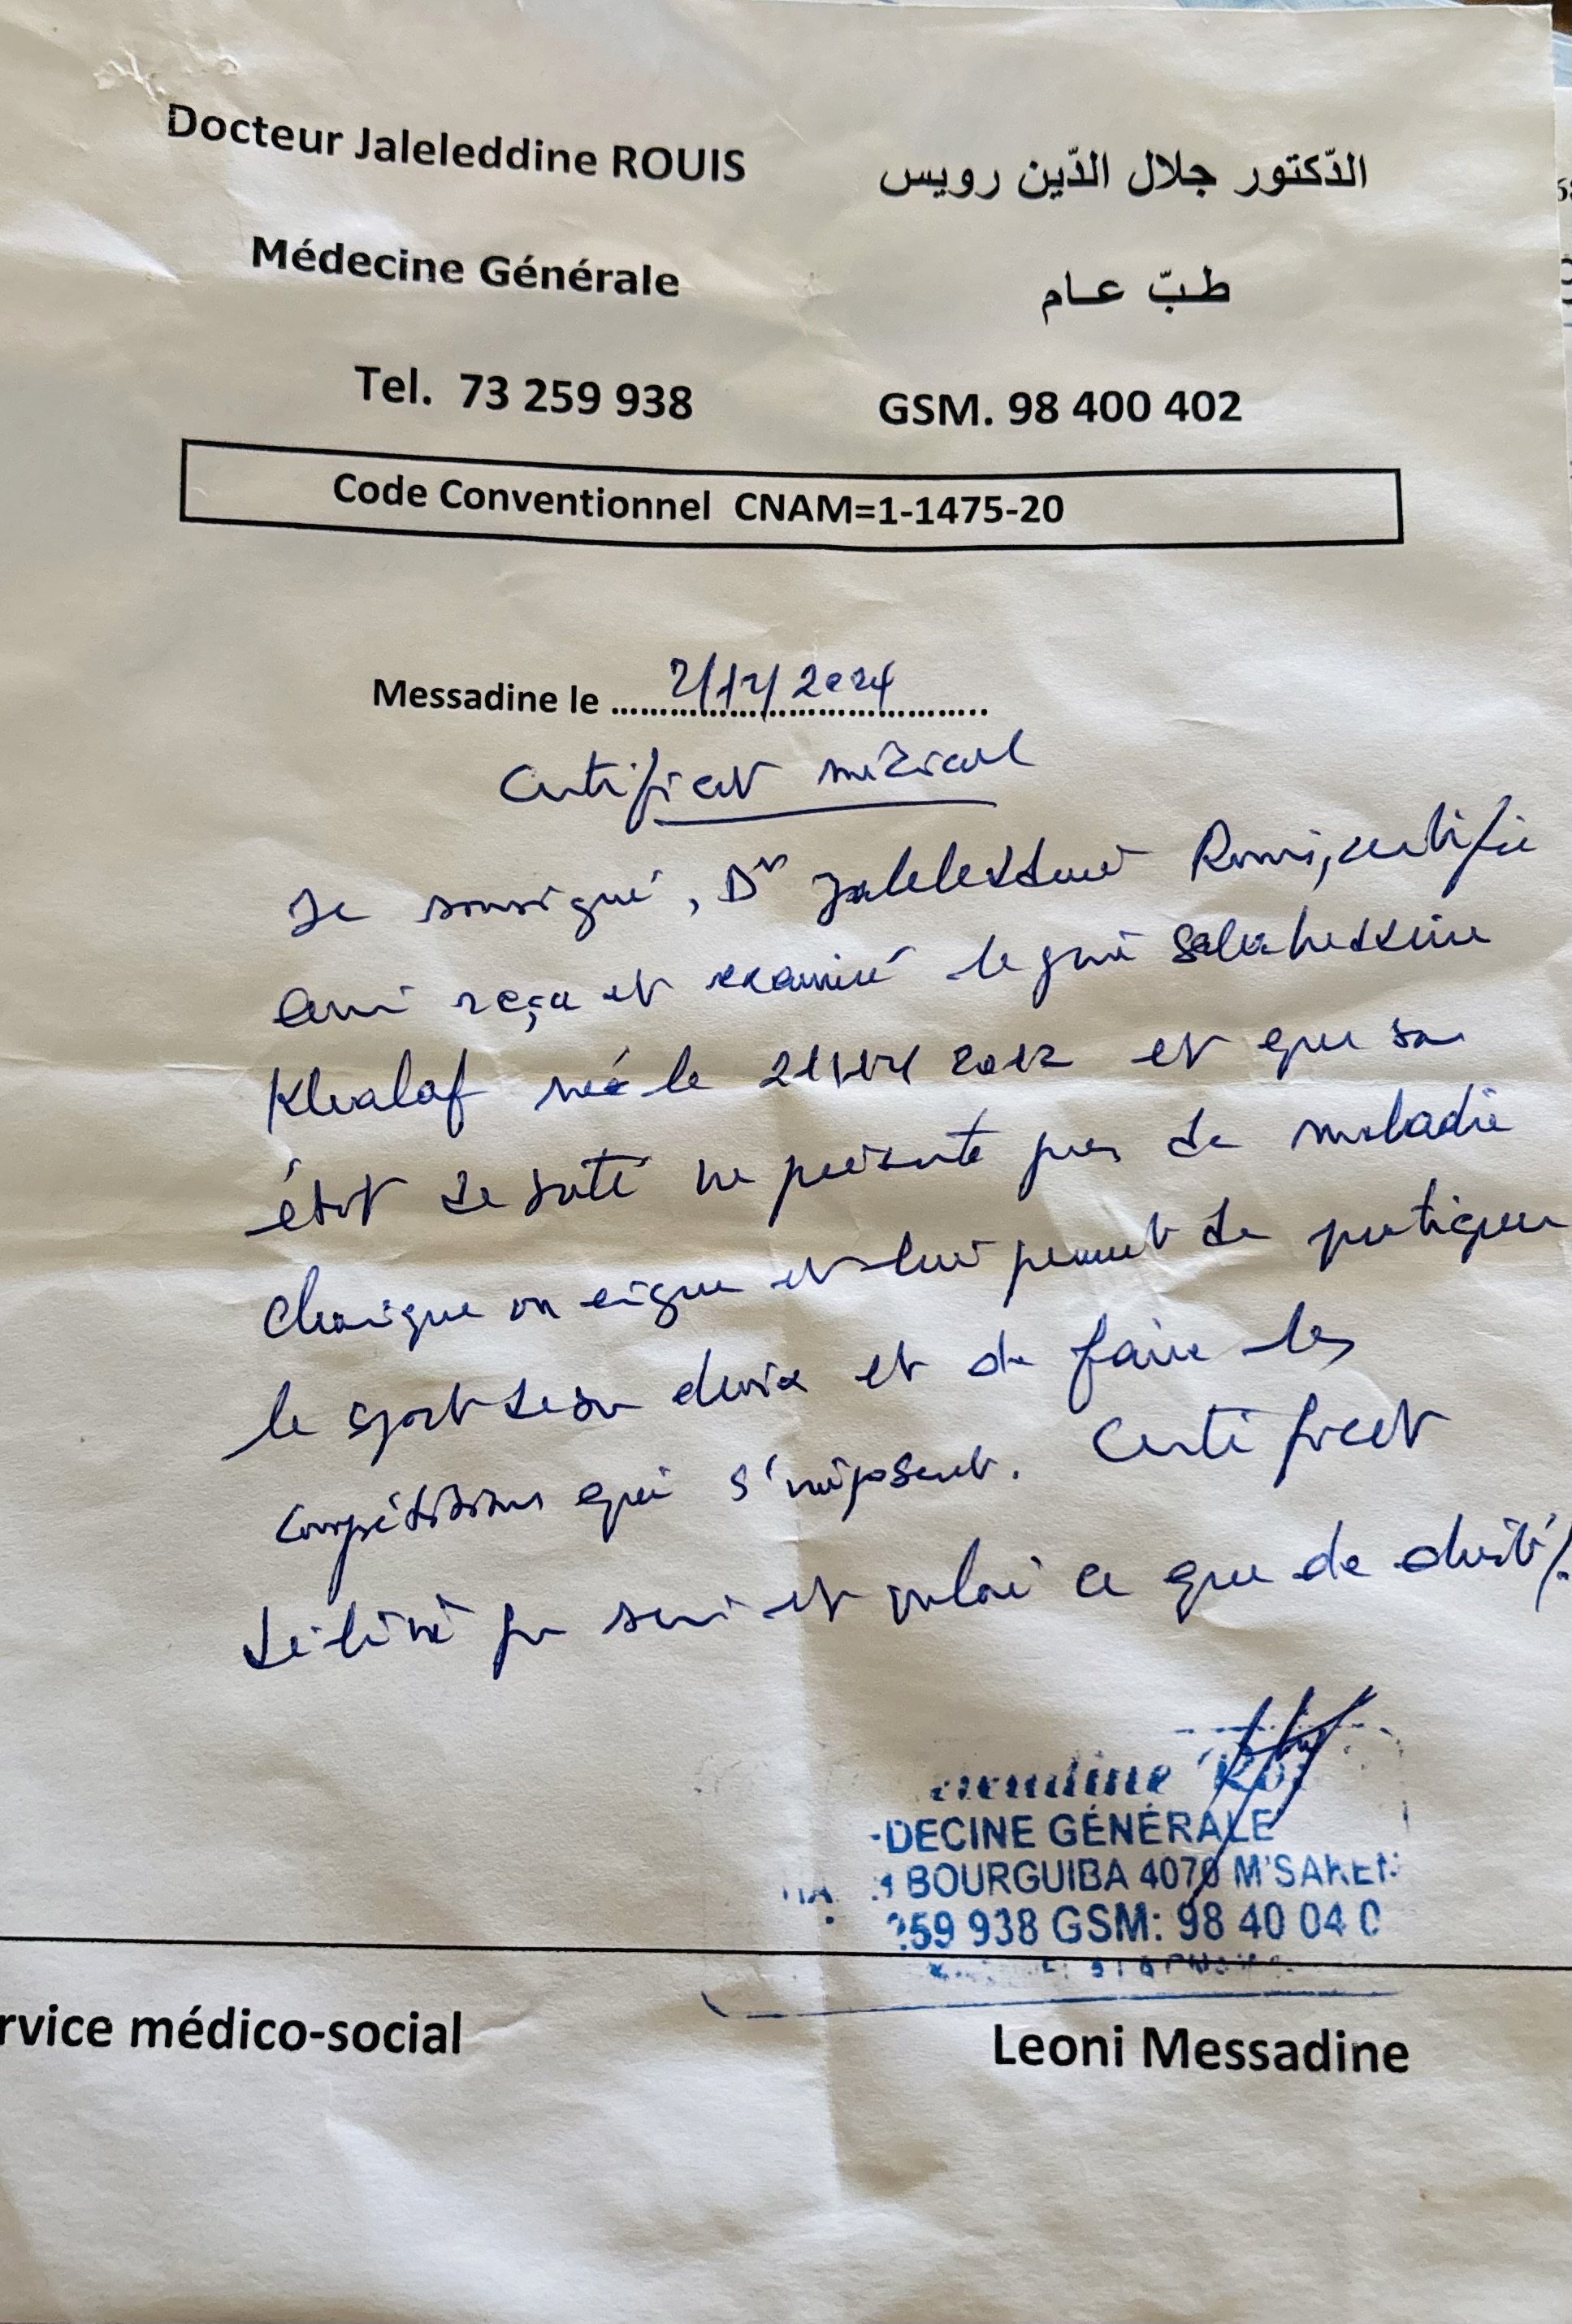 Docteur Jaleleddine ROUIS
الدّكتور جلال الدّين رويس
Médecine Générale
طبّ عام
Tel. 73 259 938
GSM. 98 400 402
Code Conventionnel CNAM=1-1475-20
Messadine le 2/12/2024
Certificat médical
Je soussigné, Dr Jaleleddine Rouis, certifie
avoir reçu et examiné le jeune Salaheddine
Khalaf né le 2012 et que sa
état de santé ne présente pas de maladie
chronique ou aigue et lui permet de pratiquer
le sport de son choix et de faire les
compétitions qui s'imposent. Certificat
délivré pr servir et valoir ce que de droit/.
DECINE GÉNÉRALE
BOURGUIBA 4070 M'SAKEN
259 938 GSM: 98 40 04 0
rvice médico-social
Leoni Messadine